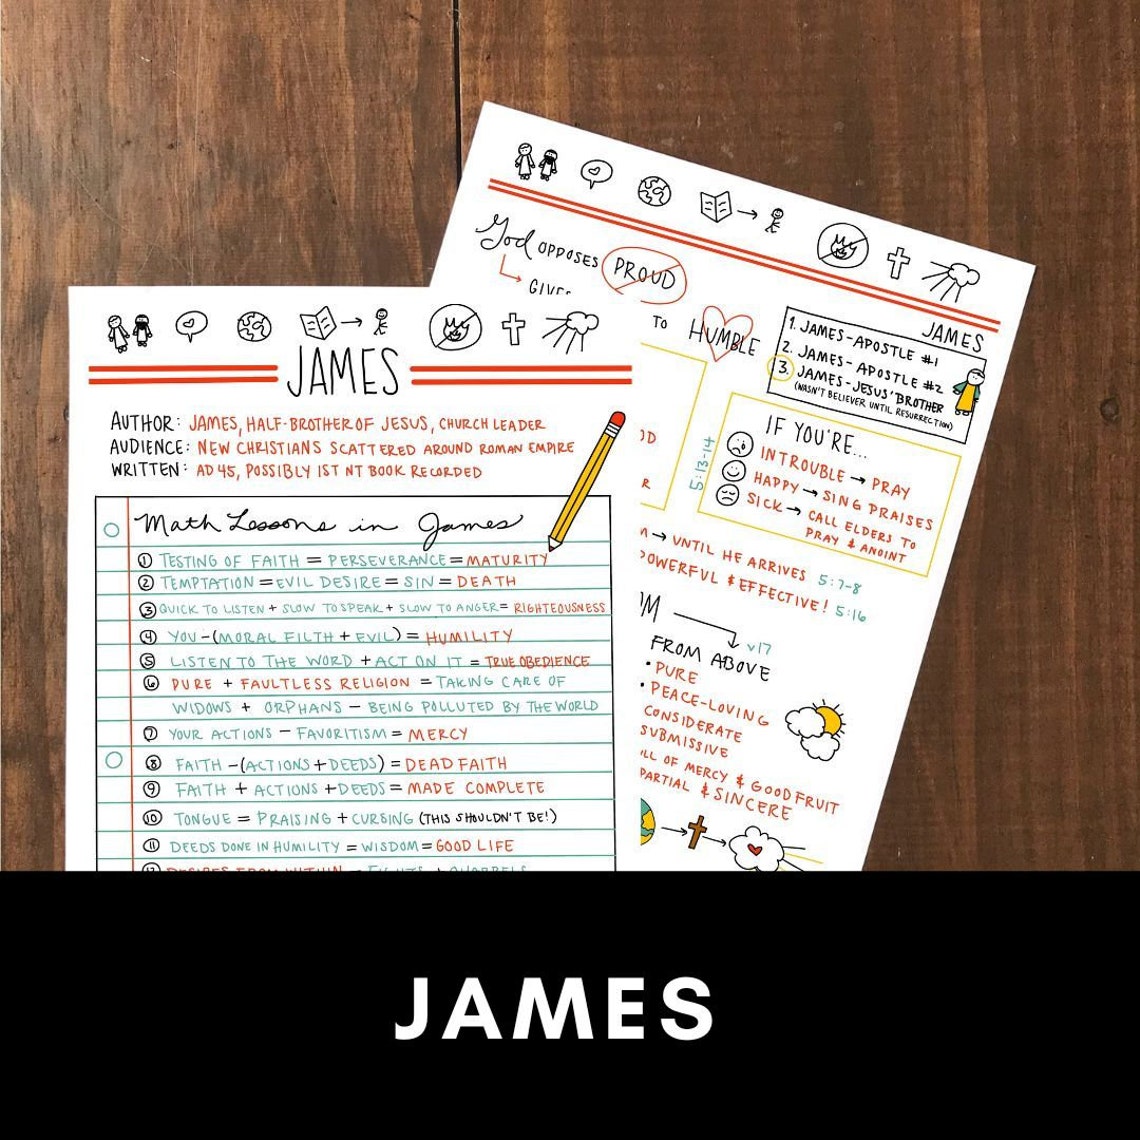 JAMES
AUTHOR: JAMES, HALF-BROTHER OF JESUS, CHURCH LEADER
AUDIENCE: NEW CHRISTIANS SCATTERED AROUND ROMAN EMPIRE
WRITTEN: AD 45, POSSIBLY 1ST NT BOOK RECORDED
Math Lessons in James
1 TESTING OF FAITH = PERSEVERANCE = MATURITY
2 TEMPTATION = EVIL DESIRE = SIN = DEATH
3 QUICK TO LISTEN + SLOW TO SPEAK + SLOW TO ANGER = RIGHTEOUSNESS
4 YOU - (MORAL FILTH + EVIL) = HUMILITY
5 LISTEN TO THE WORD + ACT ON IT = TRUE OBEDIENCE
6 PURE + FAULTLESS RELIGION = TAKING CARE OF
WIDOWS + ORPHANS - BEING POLLUTED BY THE WORLD
7 YOUR ACTIONS - FAVORITISM = MERCY
8 FAITH - (ACTIONS + DEEDS) = DEAD FAITH
9 FAITH + ACTIONS + DEEDS = MADE COMPLETE
10 TONGUE = PRAISING + CURSING (THIS SHOULDN'T BE!)
11 DEEDS DONE IN HUMILITY = WISDOM = GOOD LIFE
12 DESIRES FROM WITHIN = FIGHTS + QUARRELS
God OPPOSES PROUD
GIVES
TO HUMBLE
JAMES
1. JAMES - APOSTLE #1
2. JAMES - APOSTLE #2
3. JAMES - JESUS' BROTHER
(WASN'T BELIEVER UNTIL RESURRECTION)
5:13-14
IF YOU'RE...
IN TROUBLE → PRAY
HAPPY → SING PRAISES
SICK → CALL ELDERS TO
PRAY & ANOINT
→ UNTIL HE ARRIVES 5:7-8
POWERFUL & EFFECTIVE! 5:16
v17
FROM ABOVE
• PURE
• PEACE-LOVING
CONSIDERATE
SUBMISSIVE
OF MERCY & GOOD FRUIT
& SINCERE
JAMES